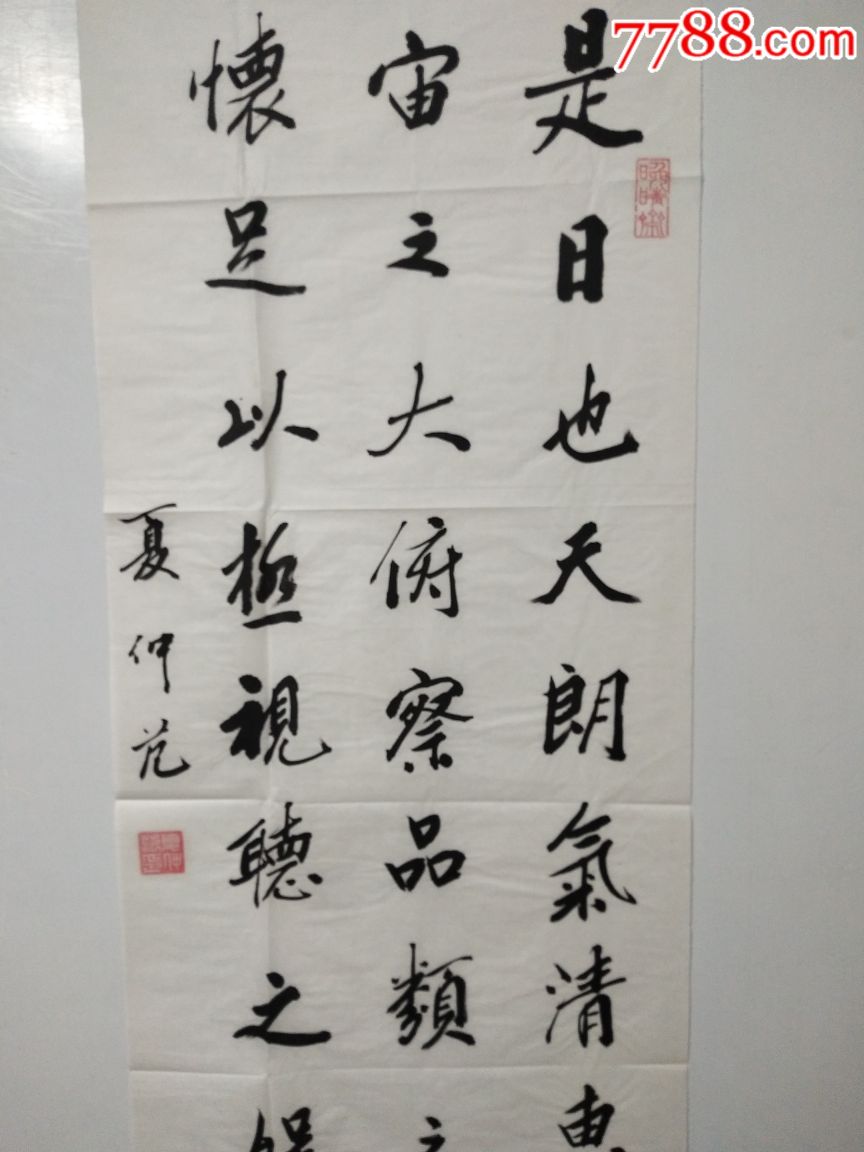 7788.com
是日也天朗氣清惠
宙之大俯察品類之
懷足以極視聽之娛
夏仲范